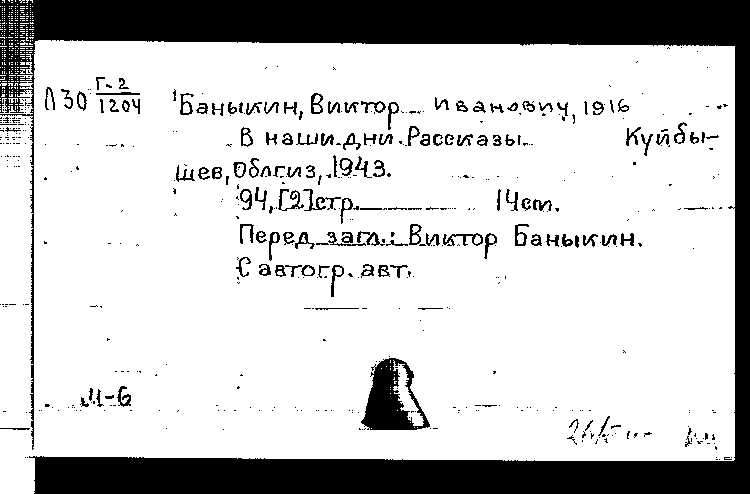 Л30 Г-2/1204
Баныкин, Виктор Иванович, 1916
В наши дни. Рассказы. Куйбы-
шев, Облгиз, 1943.
94, [2] стр. 14см.
Перед загл.: Виктор Баныкин.
С автогр. авт.
М-6